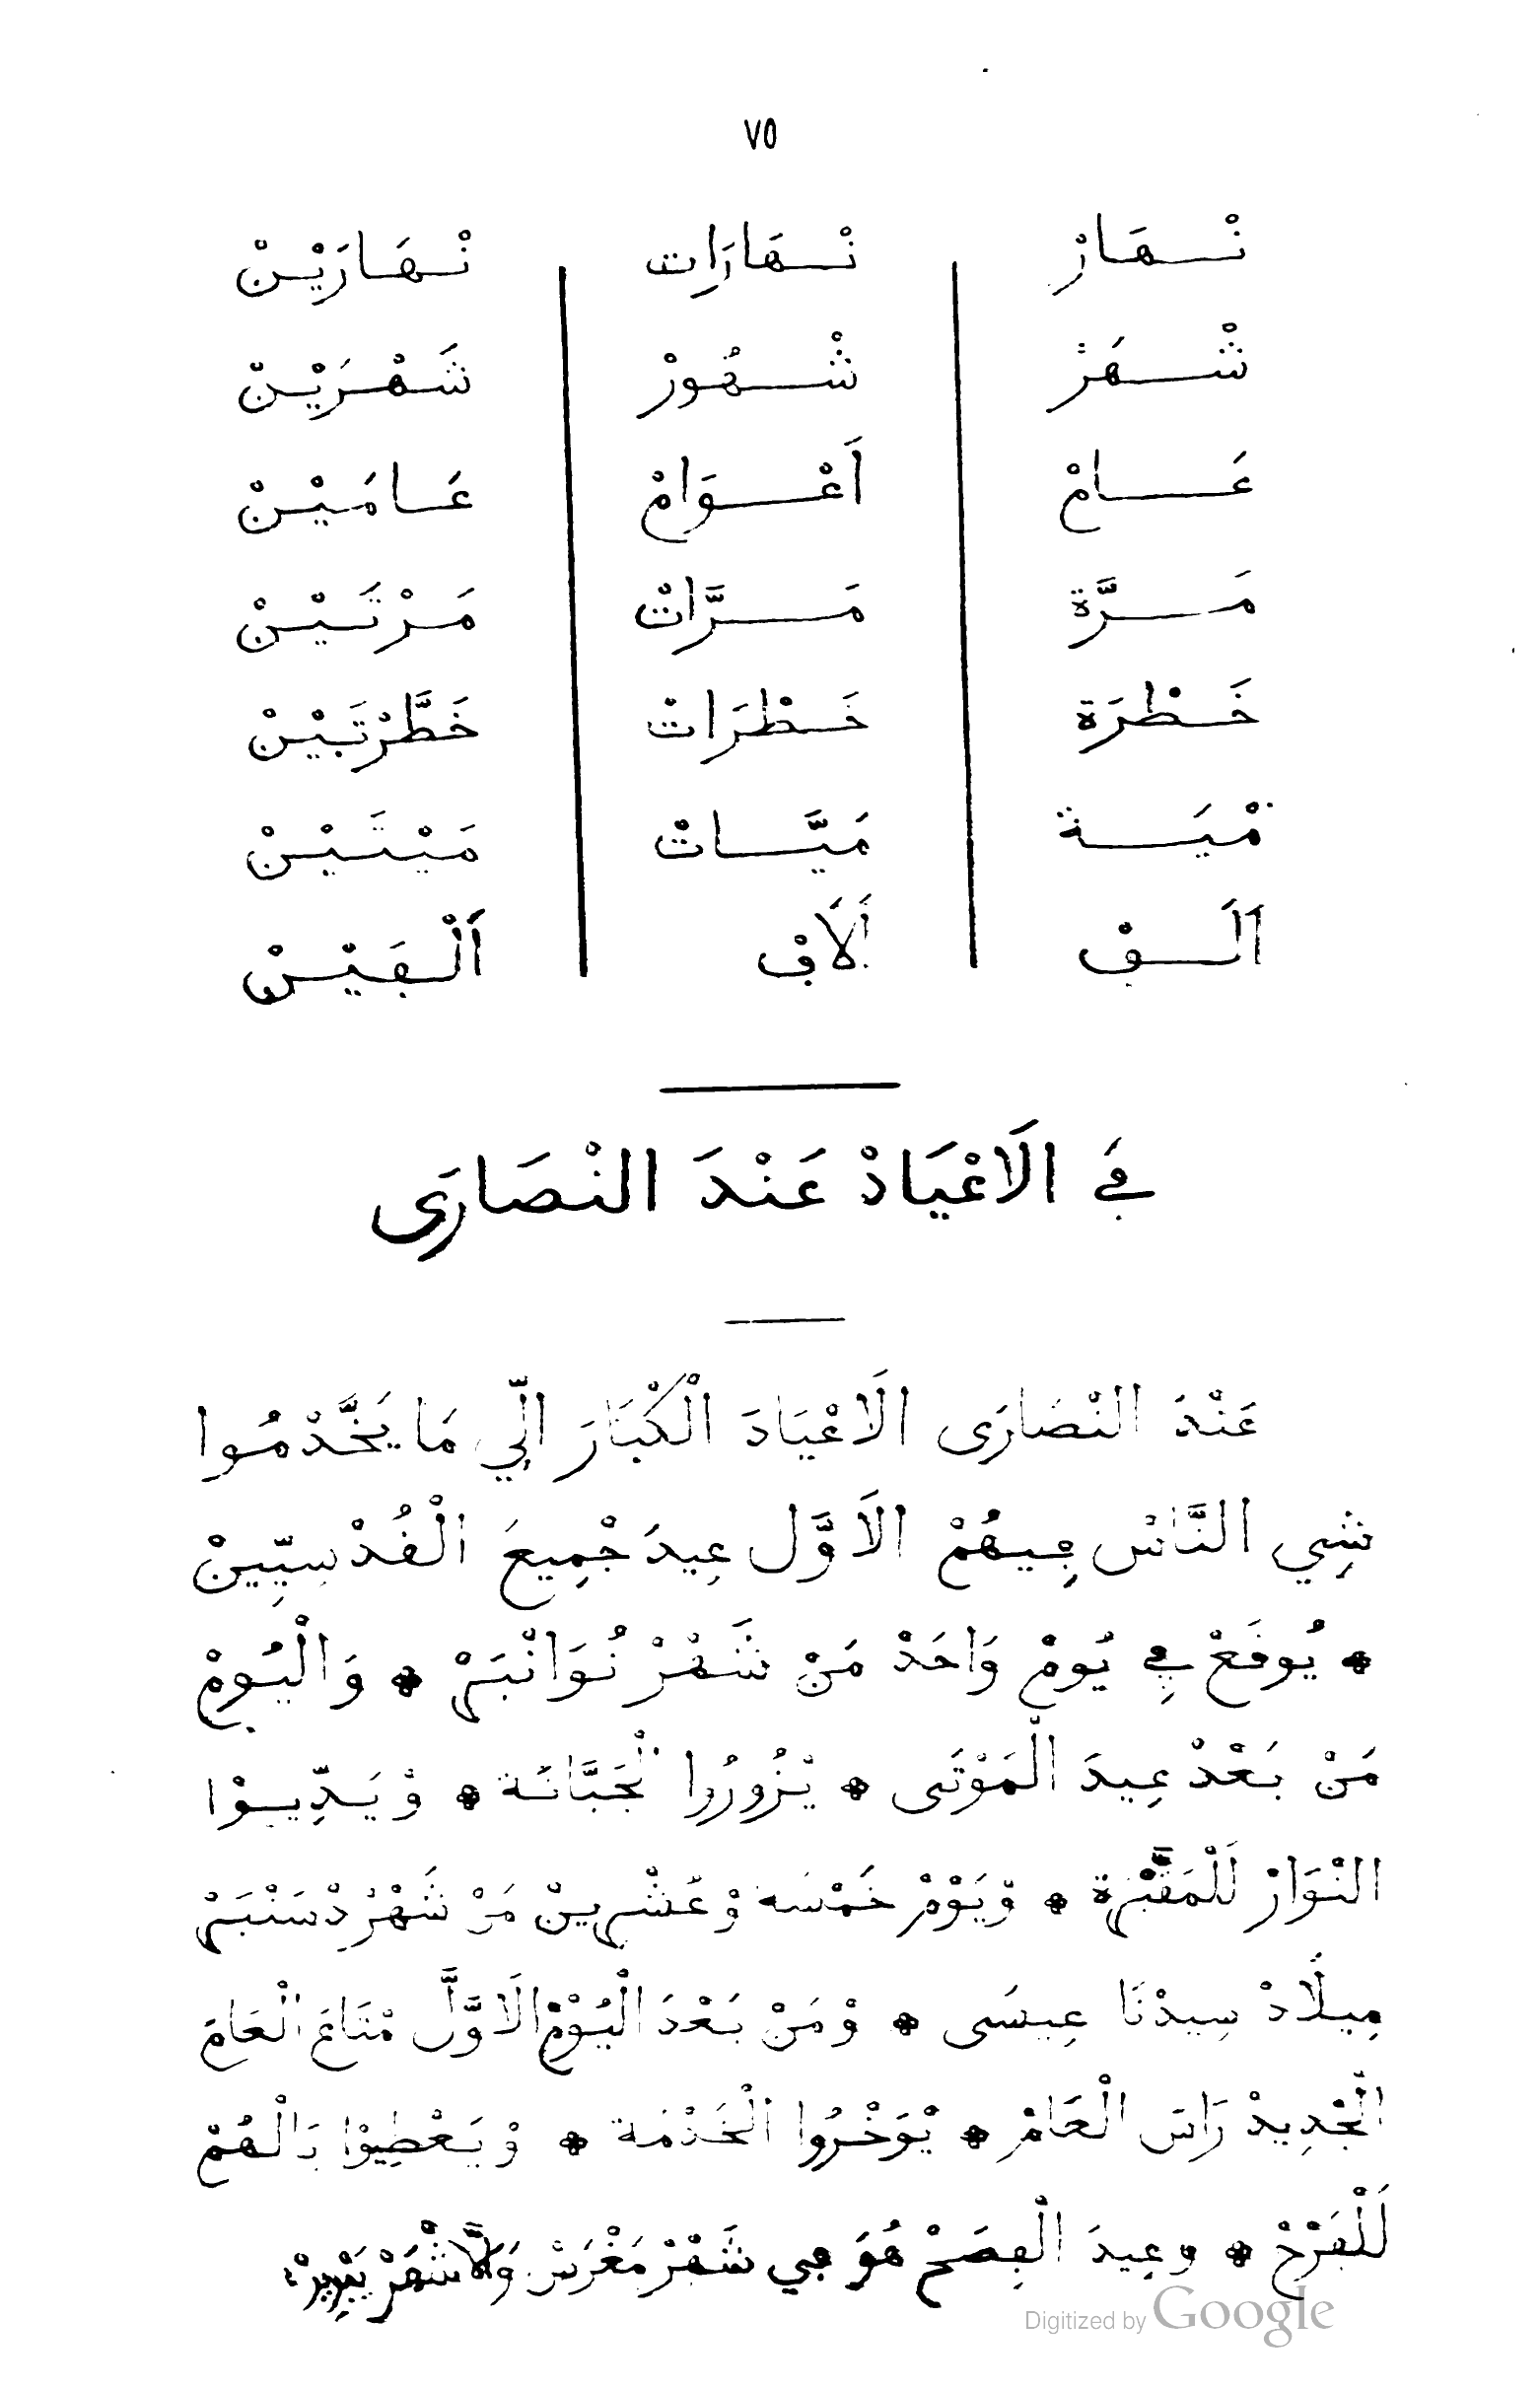 ٧٥
نْهَارْ نْهَارَات نْهَارَيْنْ
شْهَرْ شْهُورْ شَهْرَيْنْ
عَامْ اَعْوَامْ عَامَيْنْ
مَرَّة مَرَّاتْ مَرْتَيْنْ
خَطْرَة خَطْرَاتْ خَطَّرْتَيْنْ
مْيَة مَيَّاتْ مَيْتَيْنْ
اَلَڢْ اَلَاڢْ اَلْڢَيْنْ
ڢَي الَاعْيَادْ عَنْدَ النْصَارَى
عَنْدَ النْصَارَى الَاعْيَادَ الْكْبَارَ الِّي مَا يَخَّدْمُوا
شِي النَّاسْ ڢِيهُمْ الَاوَّل عِيدَ جْمِيعَ الْفُدْسِيِّينْ
* يُوفَعْ ڢِي يُومْ وَاحَدْ مَنْ شَهْرْ نُوَانْبَرْ * وَالْيُومْ
مَنْ بَعْدْ عِيدَ الْمَوْتَى * يْزُورُوا الْجَبَّانَة * وْيَدِّيوْا
النْوَارْ لَلْمَقَّبْرَة * وْيَوْمْ خَمْسَه وْعَشْرِينْ مَنْ شَهْرْ دْسَنْبَرْ
مِيلَادْ سِيدْنَا عِيسَى * وْمَنْ بَعْدَ الْيُوْمْ الَاوَّل مْتَاعَ الْعَامَ
الْجْدِيدْ رَاسَ الْعَامْ * يْوَخْرُوا الْخَدْمَة * وْيَعْطِيوْا بَالْهُمْ
لَلْڢَرْحْ * وْعِيدَ الْڢِصَحْ هُوَ ڢِي شَهْرْ مَغْرَسْ وَلَّا شْهَرْ يَبْرِيرْ
Digitized by Google